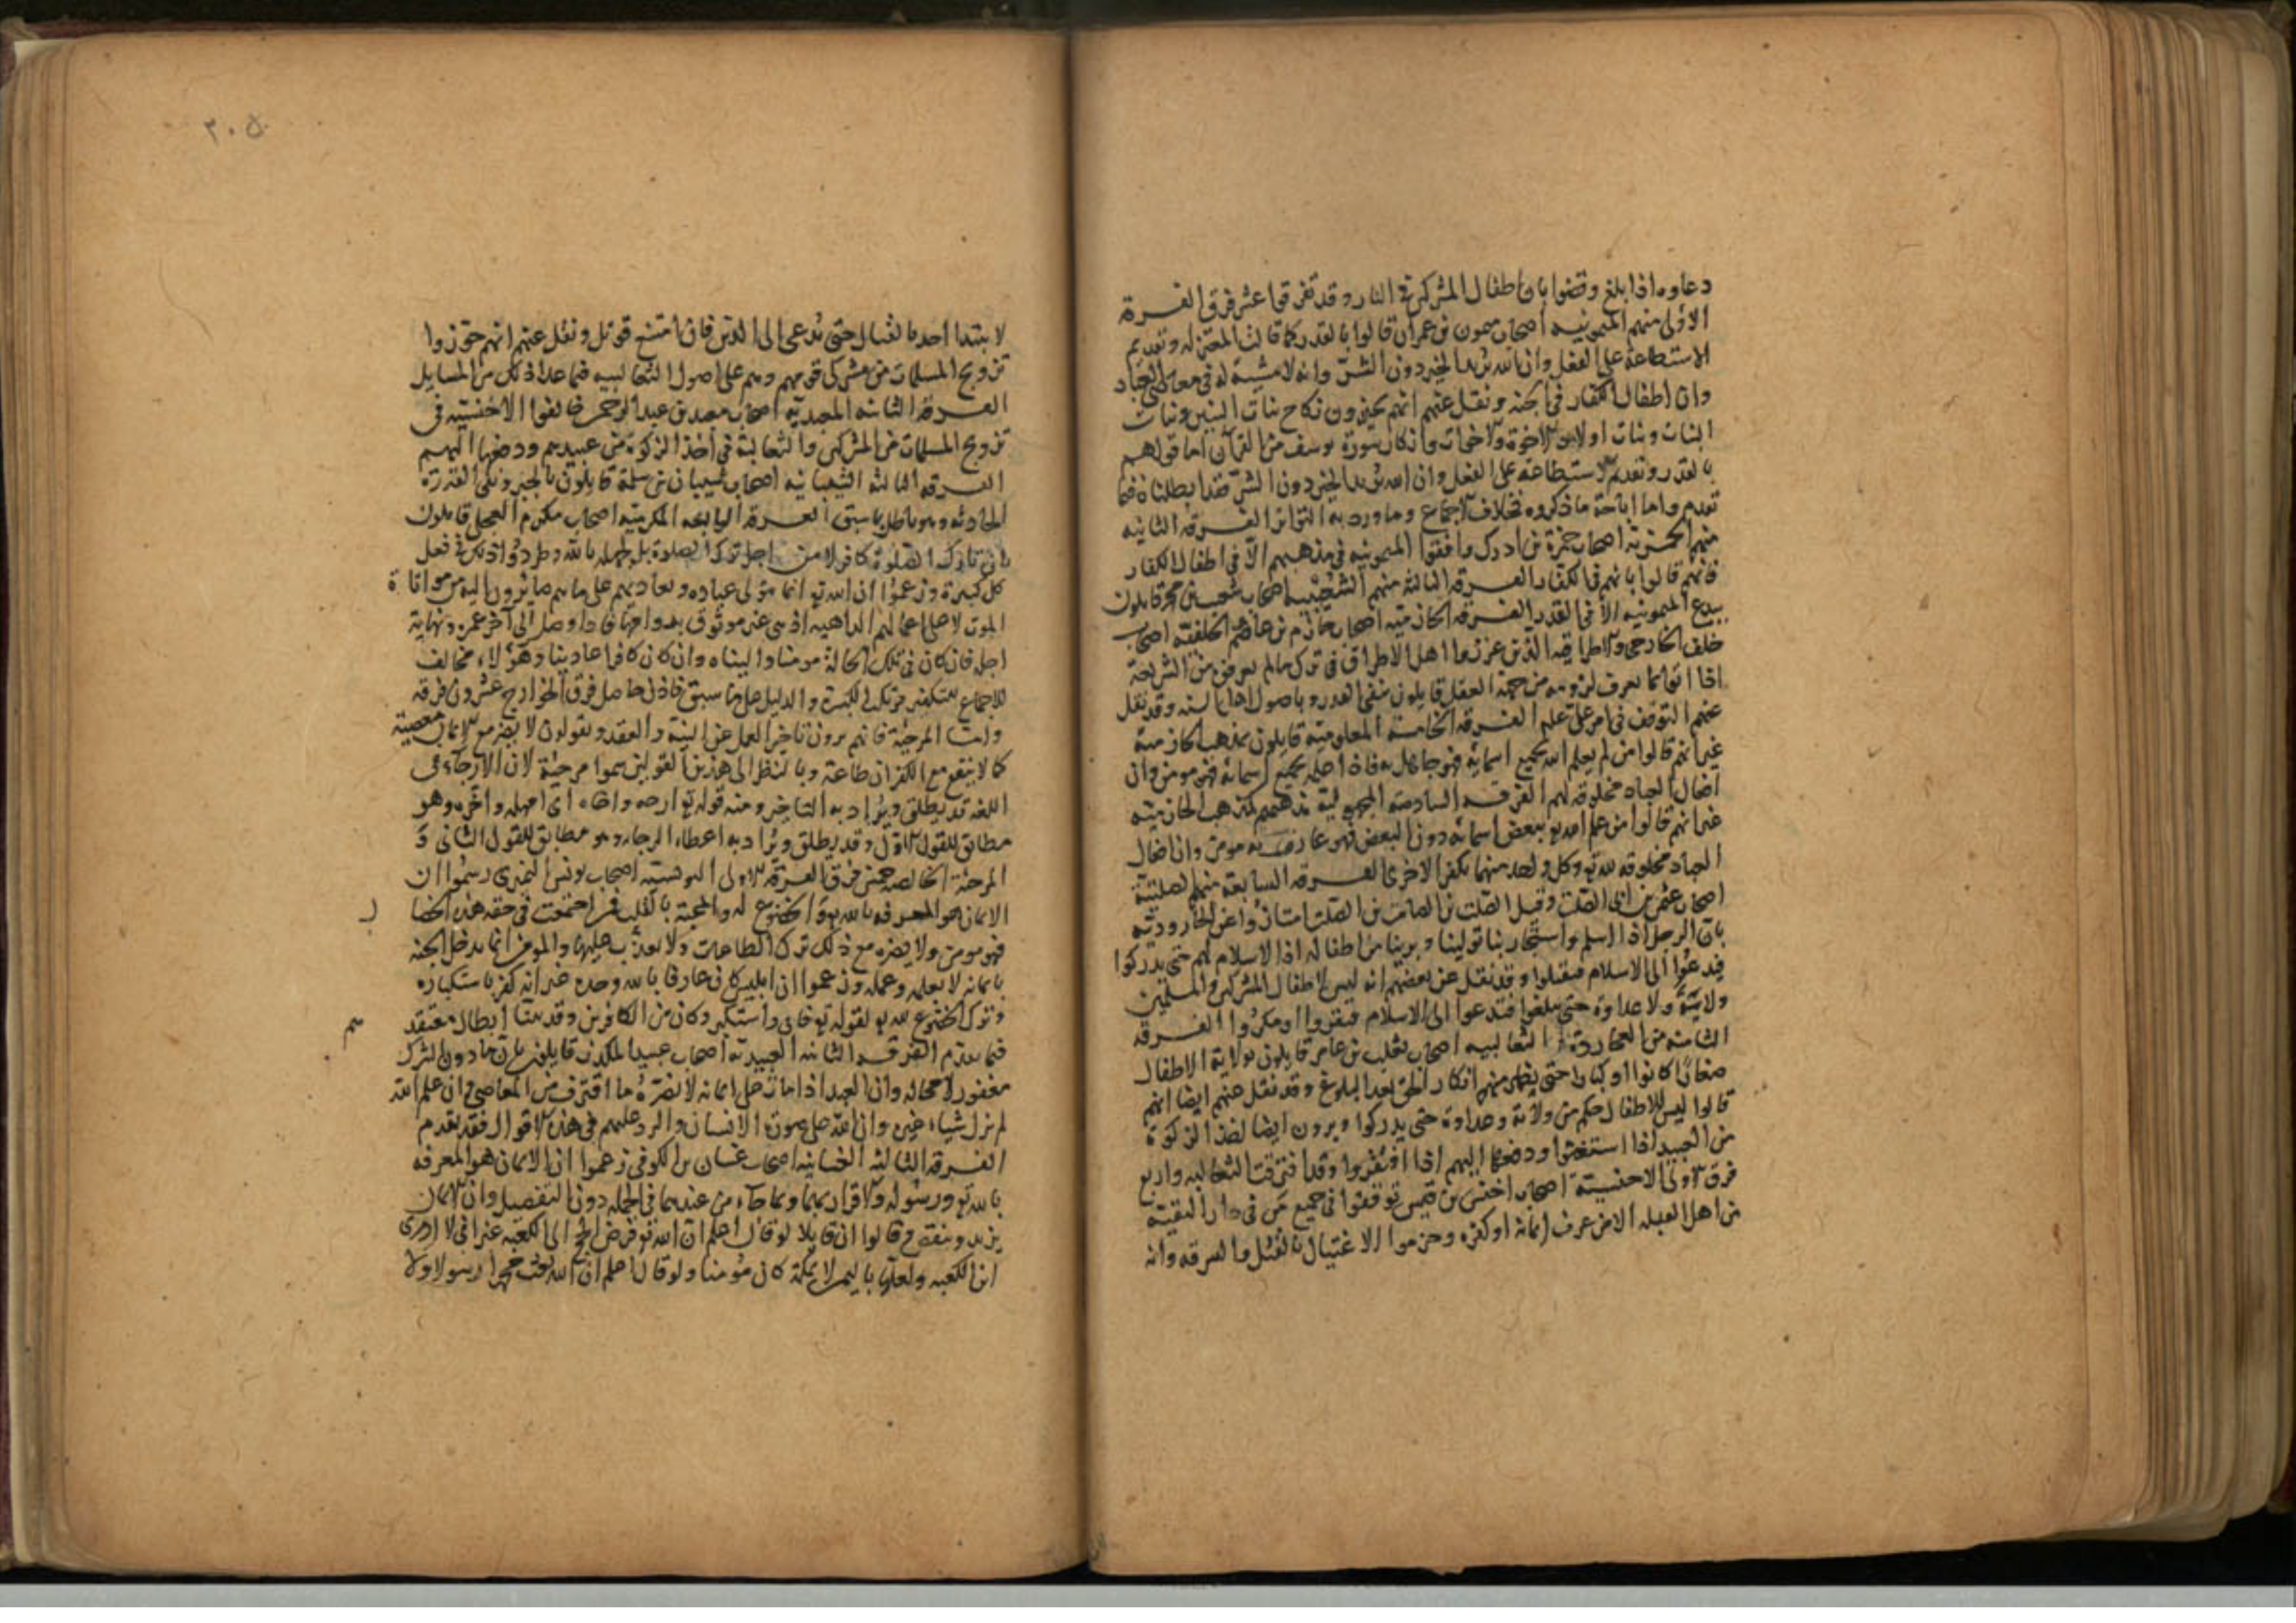 دعاوه اذا بلغ وقضوا بان اطفال المشركين في النار وقد تفرقوا عشر فرق الفرقة
الاولى منهم الميمونيه اصحاب ميمون بن عمران قالوا بالقدر كما قالت المعتزله وتقديم
الاستطاعة على الفعل وان الله يريد الخير دون الشر وانه لا مشية له في معاصي العباد
وان اطفال الكفار في الجنه ونقل عنهم انهم يجيزون نكاح بنات البنين وبنات
البنات وبنات اولاد الاخوة والاخوات وانكار سورة يوسف من القرآن اما قولهم
بالقدر وتقديم الاستطاعة على الفعل وان الله يريد الخير دون الشر فقد ابطلناه فيما
تقدم واما اباحة ما ذكروه فخلاف الاجماع وما ورد به التواتر الفرقه الثانيه
منهم الحمزيه اصحاب حمزة بن ادرك وافقوا الميمونيه في مذهبهم الا في اطفال الكفار
فانهم قالوا بانهم في الكفار الفرقه الثالثه منهم الشعيبيه اصحاب شعيب بن محمد قايلون
ببدع الميمونيه الا في القدر الفرقه الحازميه اصحاب حازم بن عاصم الخلفيه اصحاب
خلف الخارجي والاطرافيه الذين عزروا اهل الاطراف في ترك ما لم يعرفوه من الشريعة
اذا اتوا بما يعرف لزومه من جهة العقل قايلون بنفي القدر وباصول اهل السنه وقد نقل
عنهم التوقف في امر علي عليه الفرقه الخامسه المعلوميه قايلون بمذهب الحازميه
غير انهم قالوا من لم يعلم الله بجميع اسمايه فهو جاهل به فاذا علمه بجميع اسمائه فهو مومن وان
افعال العباد مخلوقه لهم الفرقه السادسه المجهوليه مذهبهم كمذهب الحازميه
غير انهم قالوا من علم الله تع ببعض اسمائه دون البعض فهو عارف به مومن وان افعال
العباد مخلوقه لله تع وكل واحد منهما يكفر الاخرى الفرقه السابعة منهم الصلتية
اصحاب عثمن بن ابي الصلت وقيل الصلت بن الصامت بن الصلت امتازوا عن العجاردة
بان الرجل اذا اسلم واستجار بنا توليناه وبرينا من اطفاله اذ لا اسلام لهم حتى يدركوا
فيدعوا الى الاسلام فيقبلوا وقد نقل عن بعضهم انه ليس لاطفال المشركين والمسلمين
ولاية ولا عداوة حتى يبلغوا فيدعوا الى الاسلام فيقروا او ينكروا الفرقه
الثامنه من العجاردة الثعالبيه اصحاب ثعلب بن عامر قايلون بولاية الاطفال
صغارا كانوا او كبارا حتى يظهر منهم انكار الحق بعد البلوغ وقد نقل عنهم ايضا انهم
قالوا ليس للاطفال حكم من ولاية وعداوة حتى يدركوا ويرون ايضا اخذ الزكوة
من العبيد اذا استغنوا ودفعها اليهم اذا افتقروا وقد افترقت الثعالبه واربع
فرق الاولى الاخنسية اصحاب اخنس بن قيس توقفوا في جميع من في دار التقية
من اهل القبله الا من عرف ايمانه او كفره وحرموا الاغتيال بالقتل والسرقه وانه
٣٠٥
لا يبتدا احد بالقتال حتى يدعى الى الدين فان امتنع قوتل ونقل عنهم انهم جوزوا
تزويج المسلمات من مشركي قومهم وهم على اصول الثعالبيه فيما عدا ذلك من المسايل
الفرقة الثانيه المعبديه اصحاب معبد بن عبد الرحمن خالفوا الاخنسيه في
تزويج المسلمات من المشركين والثعالبة في اخذ الزكوة من عبيدهم ودفعها اليهم
الفرقه الثالثه الشيبانيه اصحاب شيبان بن سلمة قايلون بالجبر ونفي القدرة
الحادثه وهو باطل بما سبق الفرقة الرابعه المكرميه اصحاب مكرم العجلي قايلون
بان تارك الصلوة كافر لا من اجل ترك الصلوة بل لجهله بالله وطردوا ذلك في فعل
كل كبيرة وزعموا ان الله تع انما يتولى عباده ويعاديهم على ما هم صايرون اليه من موافاة
الموت لا على اعمالهم الراهنه اذ هي غير موثوق بدوامها فاذا وصل الى آخر عمره ونهاية
اجله فان كان في تلك الحالة مومنا واليناه وان كان كافرا عاديناه وهؤلاء مخالف
للاجماع بتكفير مرتكب الكبيرة والدليل على ما سبق فاذن حاصل فرق الخوارج عشرون فرقه
واما المرجئة فانهم يرون تاخير العمل عن النية والعقد ويقولون لا يضر مع الايمان معصية
كما لا ينفع مع الكفران طاعة وبالنظر الى هذين القولين سموا مرجئة لان الارجاء في
اللغه قد يطلق ويراد به التاخير ومنه قوله تع ارجه واخاه اى امهله واخره وهو
مطابق للقول الاول وقد يطلق ويراد به اعطاء الرجاء وهو مطابق للقول الثاني و
المرجئة الخالصه خمس فرق الفرقة الاولى اليونسيه اصحاب يونس النميري زعموا ان
الايمان هو المعرفه بالله تع والخضوع له والمحبة بالقلب فمن اجتمعت في حقه هذه الخصا
ل
فهو مومن ولا يضره مع ذلك ترك الطاعات ولا يعذب عليها والمومن انما يدخل الجنه
بايمانه لا بعلمه وعمله وزعموا ان ابليس كان عارفا بالله وحده غير انه كفر باستكباره
وترك الخضوع لله تع لقوله تع فابى واستكبر وكان من الكافرين وقد بينا ابطال معتقد
هم
فيما تقدم الفرقه الثانيه العبيديه اصحاب عبيد المكذب قايلون بان ما دون الشرك
مغفور لا محاله وان العبد اذا مات على ايمانه لا يضره ما اقترف من المعاصي وان علم الله
لم يزل شياء غيره وان الله على صورة الانسان والرد عليهم في هذه الاقوال فقد تقدم
الفرقه الثالثه الغسانيه اصحاب غسان بن الكوفي زعموا ان الايمان هو المعرفه
بالله تع ورسوله والاقرار بهما وبما جاء من عندهما في الجمله دون التفصيل وان الايمان
يزيد وينقص قالوا ان قايلا لو قال اعلم ان الله تع فرض الحج الى الكعبه غير اني لا ادري
اين الكعبه ولعلها باليمن لا بمكة كان مؤمنا ولو قال اعلم ان الله بعث محمدا رسولا ولا